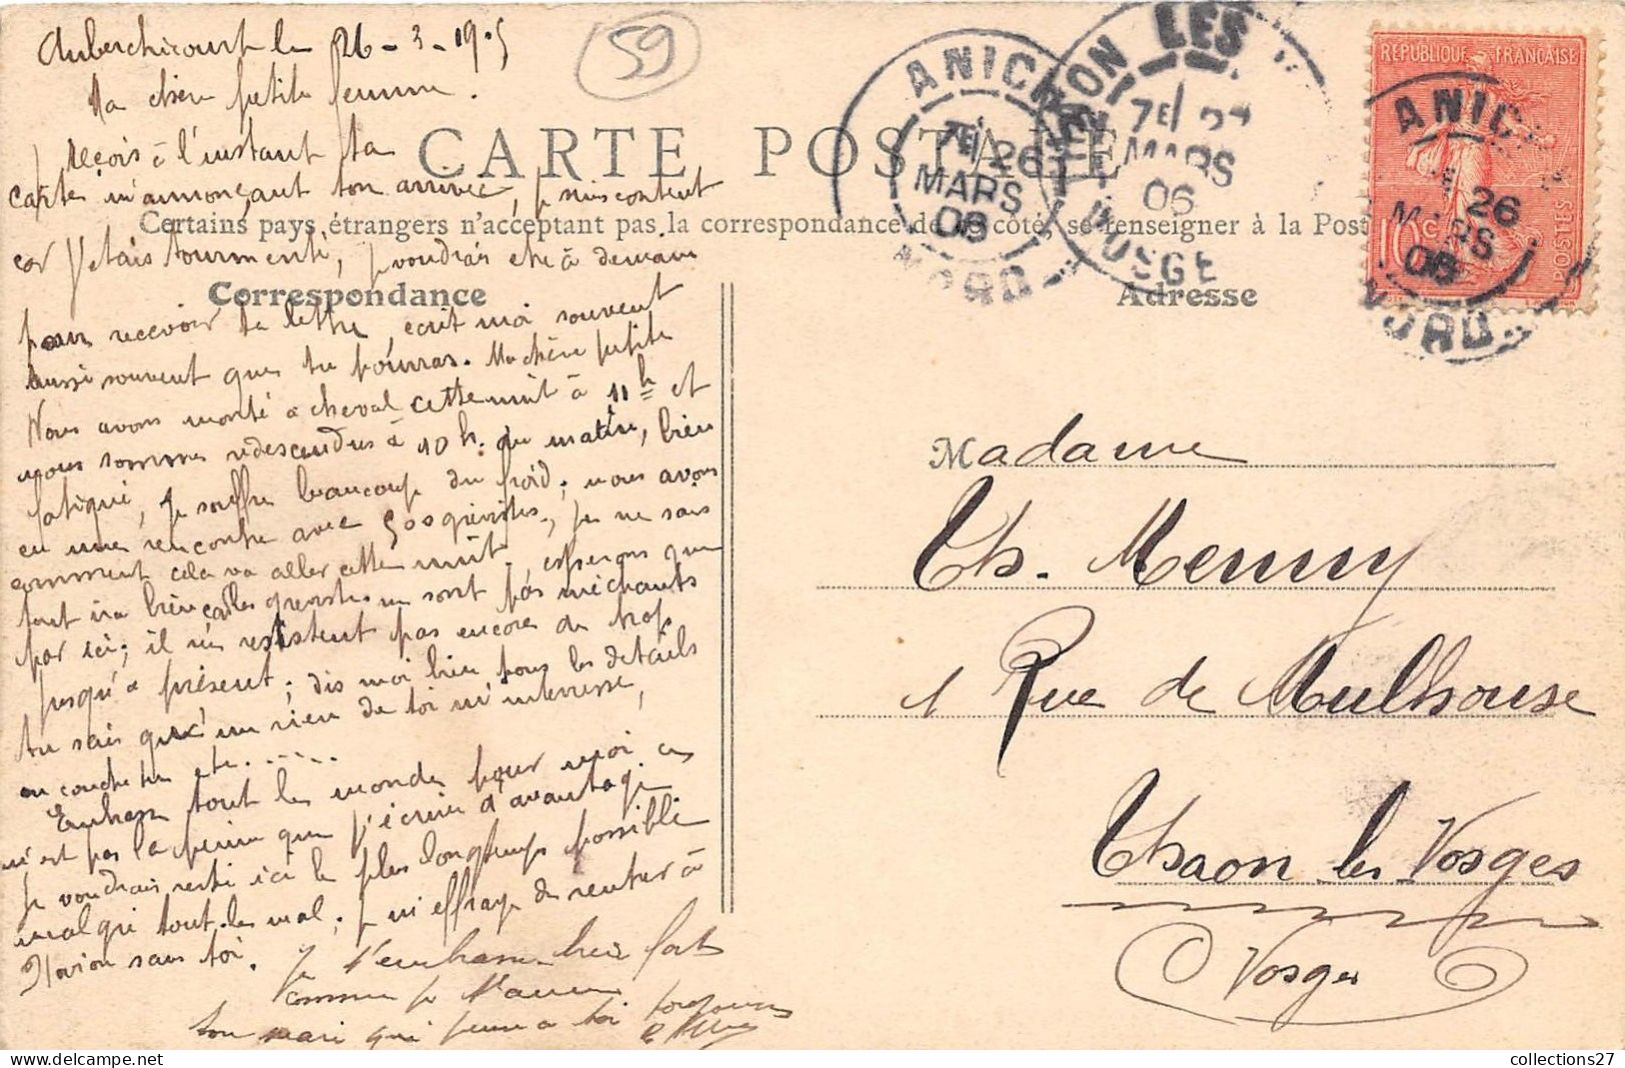 Auberchicourt le 26-3-1905
59
Ma chère petite femme.
CARTE POSTALE
Je reçois à l'instant ta
carte m'annonçant ton arrivée, je suis content
Certains pays étrangers n'acceptant pas la correspondance de ce côté, se renseigner à la Post
car j'étais tourmenté, je voudrais etre à demain
Correspondance
Adresse
pour recevoir ta lettre, ecrit moi souvent
aussi souvent que tu pourras. Ma chère petite
Nous avons monté a cheval cette nuit à 11h et
nous sommes redescendus à 10 h. du matin, bien
fatigué, Je souffre beaucoup du froid; nous avons
eu une rencontre avec 500 grévistes, je ne sais
comment cela va aller cette nuit, esperons que
tout ira bien car les grevistes ne sont pas méchants
par ici; il ne resistent pas encore de trop
jusqu'a présent; dis moi bien tous les détails
tu sais qu'un rien de toi m'interresse,
ou couche tu etc......
Embrasse tout le monde pour moi ce
n'est pas la peine que j'écrive d'avantage
Je voudrais resté ici le plus longtemps possible
malgré tout le mal; je m'effraye de rentrer à
sans toi. Je t'embrasse bien fort
comme je t'aime
ton mari qui pense a toi toujours
ANICHE
7E 26
MARS
06
NORD
THAON LES VOSGES
7E 27
MARS
06
VOSGES
RÉPUBLIQUE FRANÇAISE
10c
POSTES
ANICHE
26
MARS
06
NORD
Madame
Th. Menny
1 Rue de Mulhouse
Thaon les Vosges
Vosges
collections27